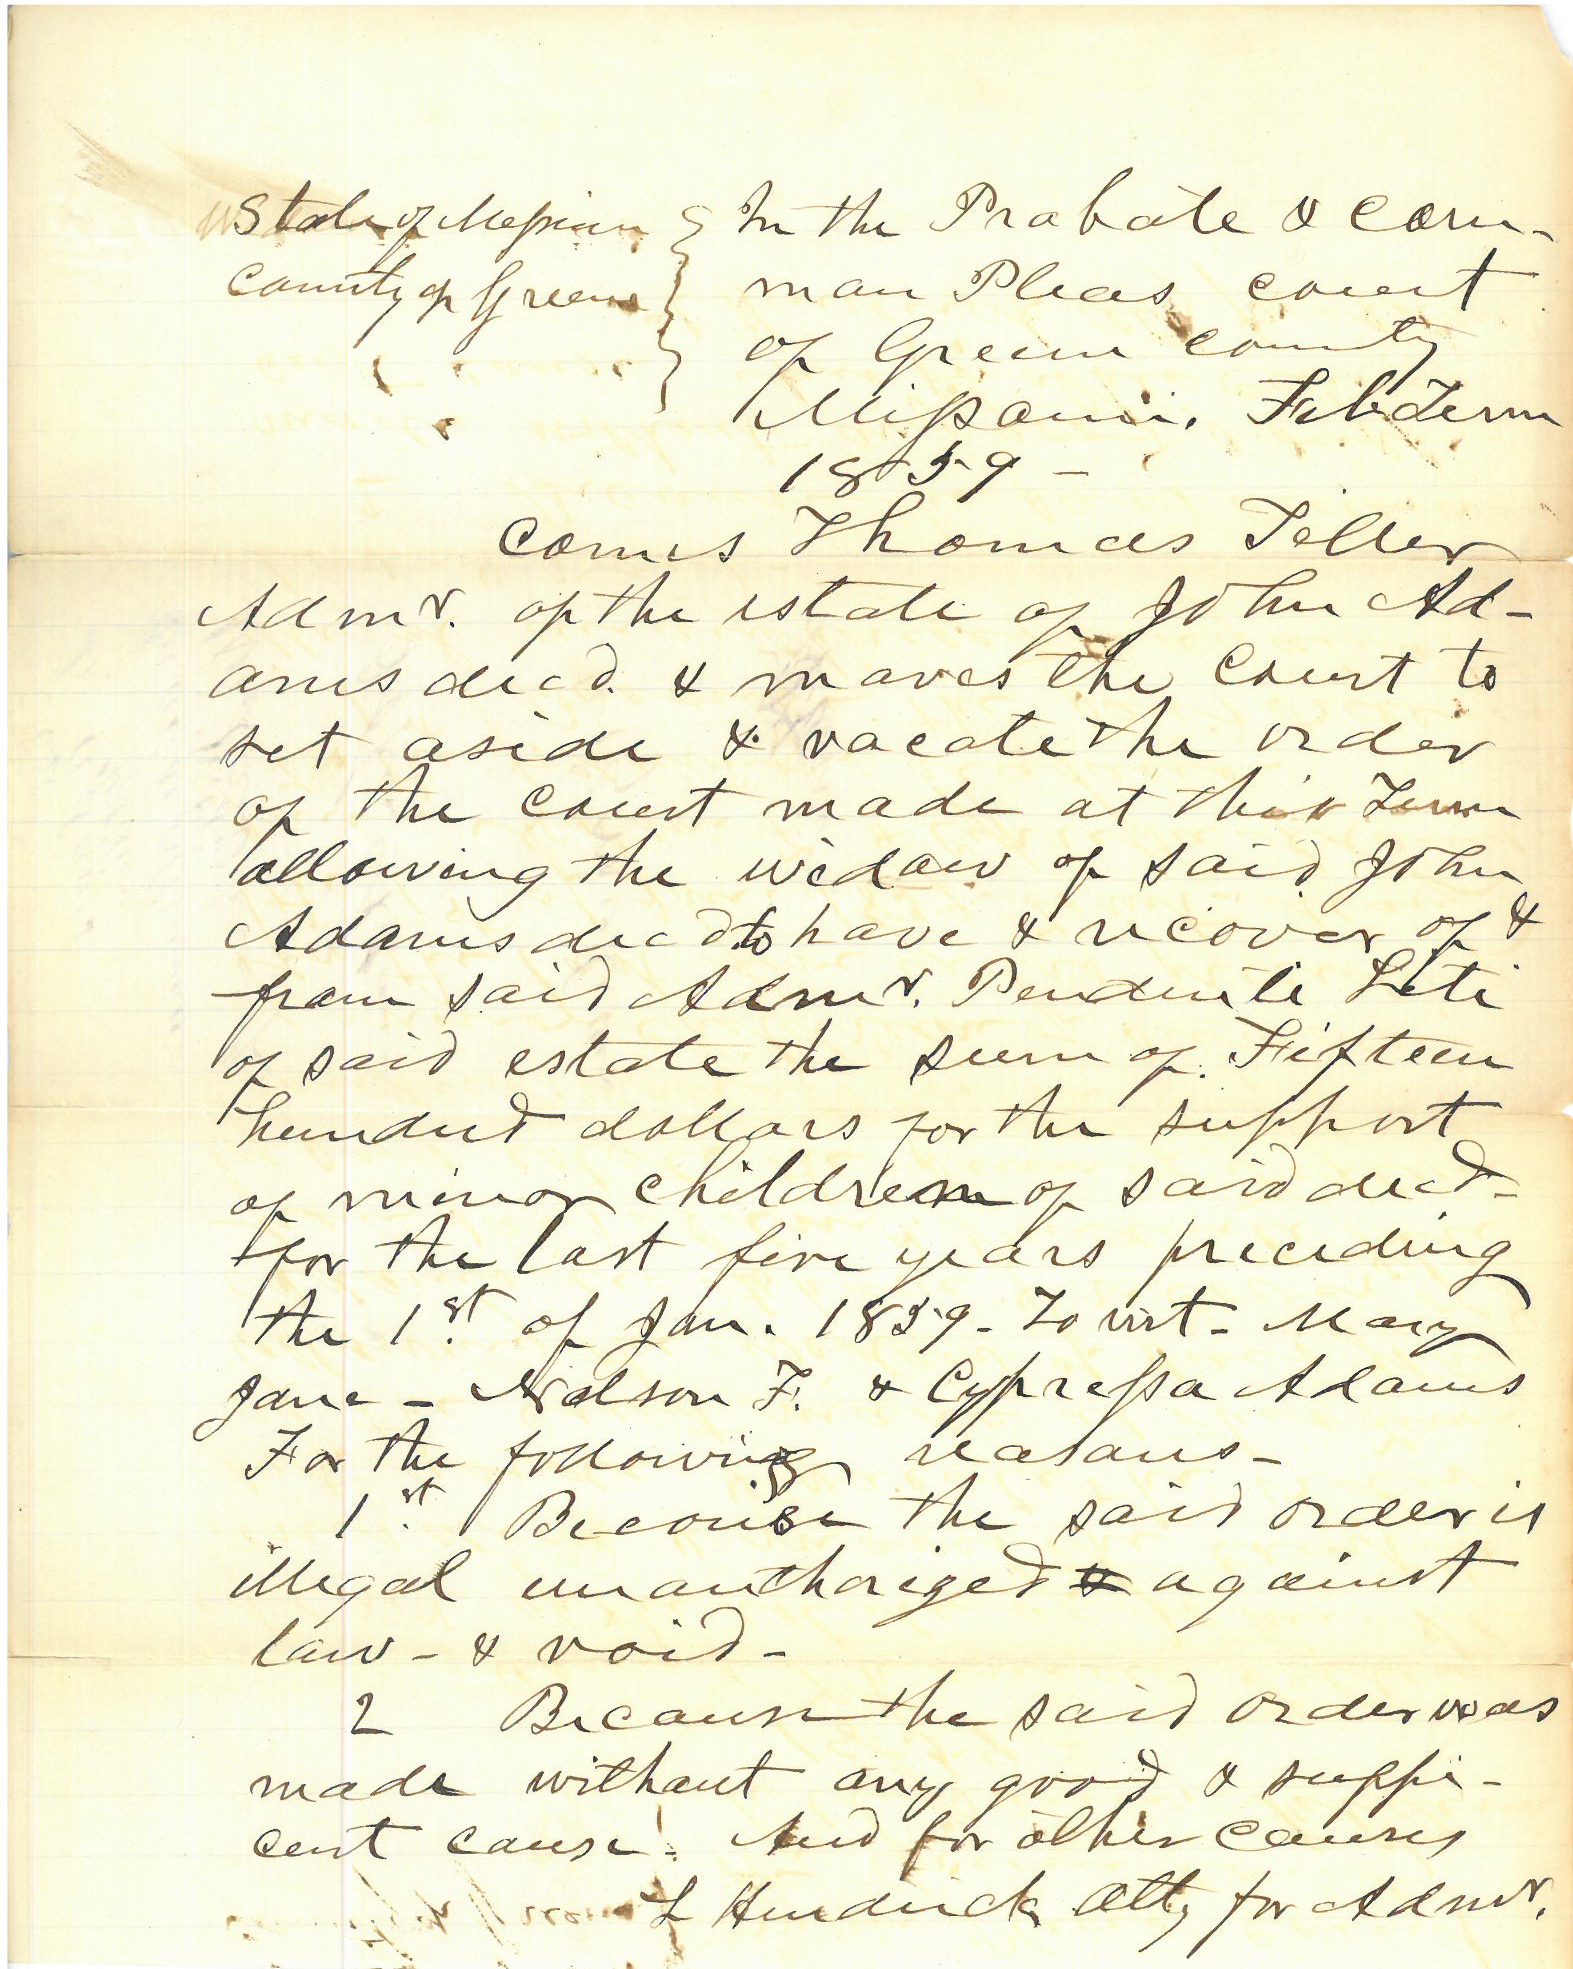 State of Missouri } In the Probate & Com-
County of Greene } mon Pleas court
of Greene county
Missouri. Feb Term
1859 -
Comes Thomas Teller
Admr. of the estate of John Ad-
ams decd. & moves the Court to
set aside & vacate the order
of the Court made at this Term
allowing the widow of said John
Adams decd to have & recover of &
from said Admr. Pendente Lite
of said estate the sum of Fifteen
hundred dollars for the support
of minor children of said decd-
for the last five years preceding
the 1st. of Jan. 1859 - To wit - Mary
Jane - Nelson F. & Cypressa Adams
For the following reasons -
1st. Because the said order is
illegal unauthorized & against
law - & void -
2 Because the said order was
made without any good & suffi-
cent cause. And for other causes
L Hendrick Atty for Admr.